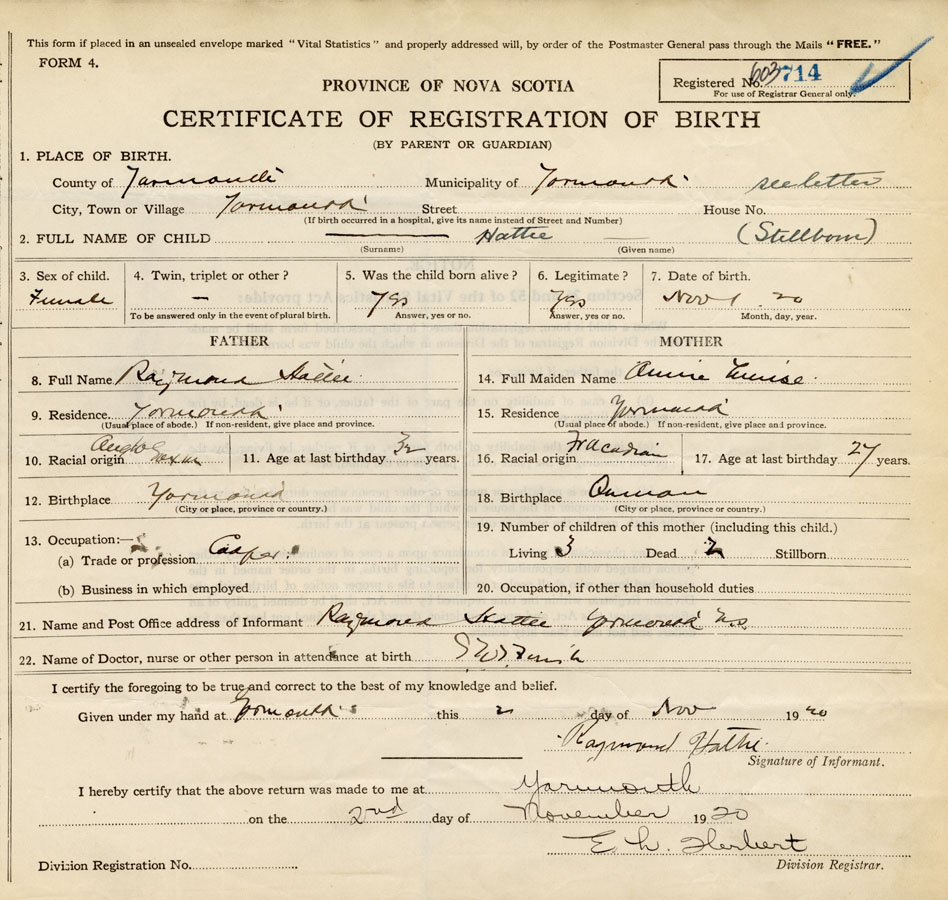 This form if placed in an unsealed envelope marked "Vital Statistics" and properly addressed will, by order of the Postmaster General pass through the Mails "FREE."
FORM 4.
Registered No. 603 714
For use of Registrar General only.
PROVINCE OF NOVA SCOTIA
CERTIFICATE OF REGISTRATION OF BIRTH
(BY PARENT OR GUARDIAN)
1. PLACE OF BIRTH.
County of Yarmouth Municipality of Yarmouth see letter
City, Town or Village Yarmouth Street House No.
(If birth occurred in a hospital, give its name instead of Street and Number)
2. FULL NAME OF CHILD Hattie (Stillborn)
(Surname) (Given name)
3. Sex of child. 4. Twin, triplet or other? 5. Was the child born alive? 6. Legitimate? 7. Date of birth.
Female — Yes Yes Nov 1 20
To be answered only in the event of plural birth. Answer, yes or no. Answer, yes or no. Month, day, year.
FATHER
8. Full Name Raymond Hattie
9. Residence Yarmouth
(Usual place of abode.) If non-resident, give place and province.
10. Racial origin Anglo Saxon 11. Age at last birthday 32 years.
12. Birthplace Yarmouth
(City or place, province or country.)
13. Occupation:—
(a) Trade or profession
(b) Business in which employed
MOTHER
14. Full Maiden Name Annie
15. Residence Yarmouth
(Usual place of abode.) If non-resident, give place and province.
16. Racial origin Fr Acadian 17. Age at last birthday 27 years.
18. Birthplace
(City or place, province or country.)
19. Number of children of this mother (including this child.)
Living 3 Dead 2 Stillborn
20. Occupation, if other than household duties
21. Name and Post Office address of Informant Raymond Hattie Yarmouth N.S.
22. Name of Doctor, nurse or other person in attendance at birth
I certify the foregoing to be true and correct to the best of my knowledge and belief.
Given under my hand at Yarmouth this 2 day of Nov 1920
Raymond Hattie
Signature of Informant.
I hereby certify that the above return was made to me at Yarmouth
on the 2nd day of November 1920
E. h. Herbert
Division Registration No. Division Registrar.